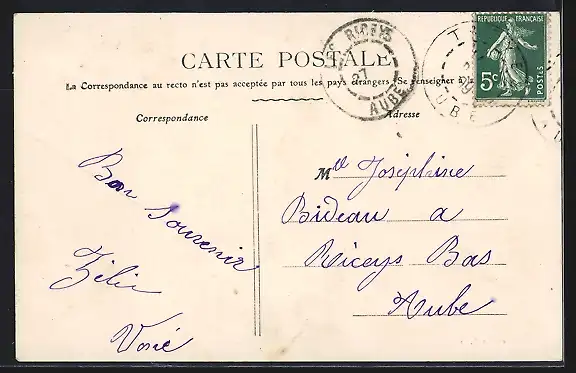 RÉPUBLIQUE FRANÇAISE
5c
POSTES
RICEYS
21
AUBE
CARTE POSTALE
La Correspondance au recto n'est pas acceptée par tous les pays étrangers. Se renseigner à la
Correspondance
Adresse
Bon Souvenir
Zélie
Mlle Joséphine
Bideau a
Riceys Bas
Aube